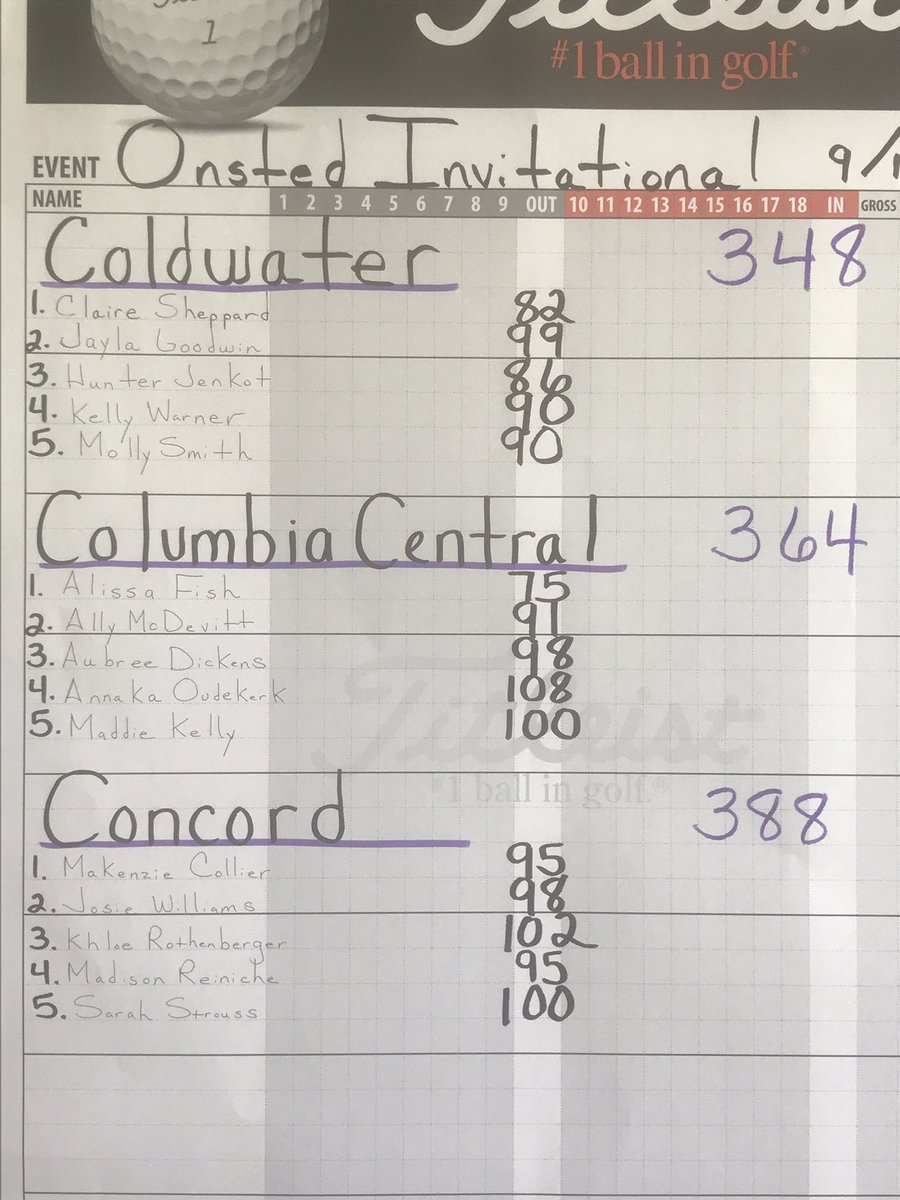 1
Titleist
#1 ball in golf.®
EVENT Onsted Invitational 9/
NAME 1 2 3 4 5 6 7 8 9 OUT 10 11 12 13 14 15 16 17 18 IN GROSS
Coldwater 348
1. Claire Sheppard 82
2. Jayla Goodwin 99
3. Hunter Jenkot 86
4. Kelly Warner 90
5. Molly Smith 90
Columbia Central 364
1. Alissa Fish 75
2. Ally McDevitt 91
3. Aubree Dickens 98
4. Annaka Oudekerk 108
5. Maddie Kelly 100
Titleist
#1 ball in golf.®
Concord 388
1. Makenzie Collier 95
2. Josie Williams 98
3. Khloe Rothenberger 102
4. Madison Reiniche 95
5. Sarah Strauss 100